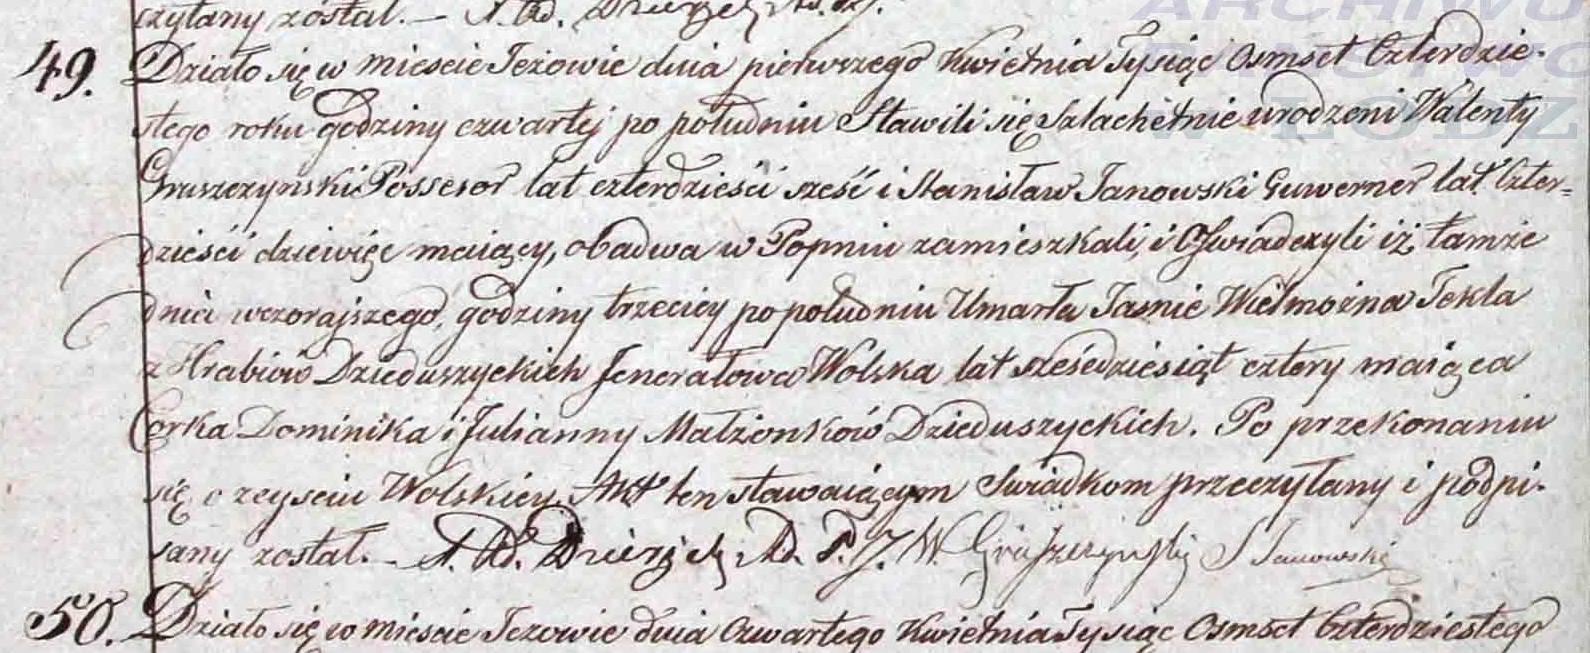 czytany został. – A. Xd.
49. Działo się w mieście Jeżowie dnia pierwszego Kwietnia Tysiąc Osmset Czterdzie-
stego roku godziny czwartej po południu Stawili się Szlachetnie urodzeni Walenty
Gruszczynski Possesor lat czterdzieści sześć i Stanisław Janowski Guwerner lat Czter=
dzieści dziewięć maiący, obadwa w Popniu zamieszkali, i Oświadczyli iż tamże
dnia wczorajszego, godziny trzeciey po południu Umarła Jaśnie Wielmożna Tekla
z Hrabiów Dzieduszyckich Jenerałowa Wolska lat sześćdziesiąt cztery maiąca
Corka Dominika i Julianny Małżonków Dzieduszyckich. Po przekonaniu
się o zeyściu Wolskiey, Akt ten stawaiącym Swiadkom przeczytany i podpi-
sany został. – A. Xd. W. Gruszczyński S Janowski
50. Działo się w mieście Jeżowie dnia Czwartego Kwietnia Tysiąc Osmset Czterdziestego
ARCHIWU
PAŃSTWO
W ŁODZ